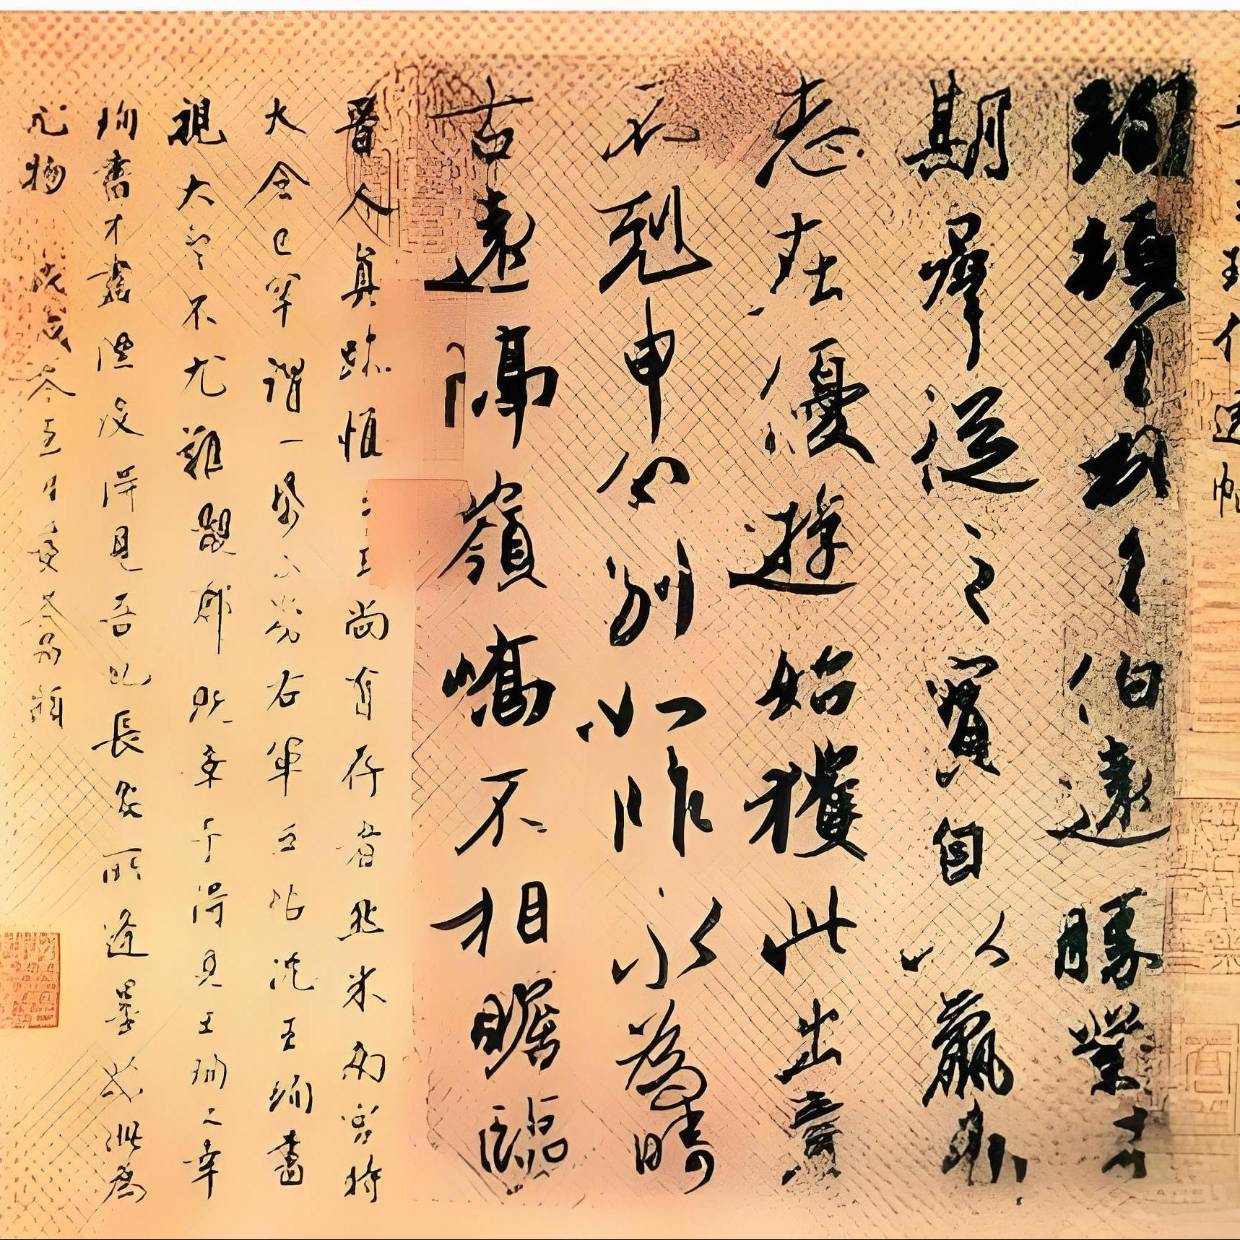 珣伯遠帖
珣頓首頓首伯遠勝業情
期群從之寶自以羸患
志在優遊始獲此出意
不剋申分別如昨永為疇
古遠隔嶺嶠不相瞻臨
晉人真跡惟二王尚有存者然米南宮時
大令已罕謂一紙可當右軍五帖況王珣書
視大令不尤難覯耶既幸予得見王珣又幸
珣書不盡湮沒得見吾也長安所逢墨跡此為
尤物 戊戌冬至日董其昌題